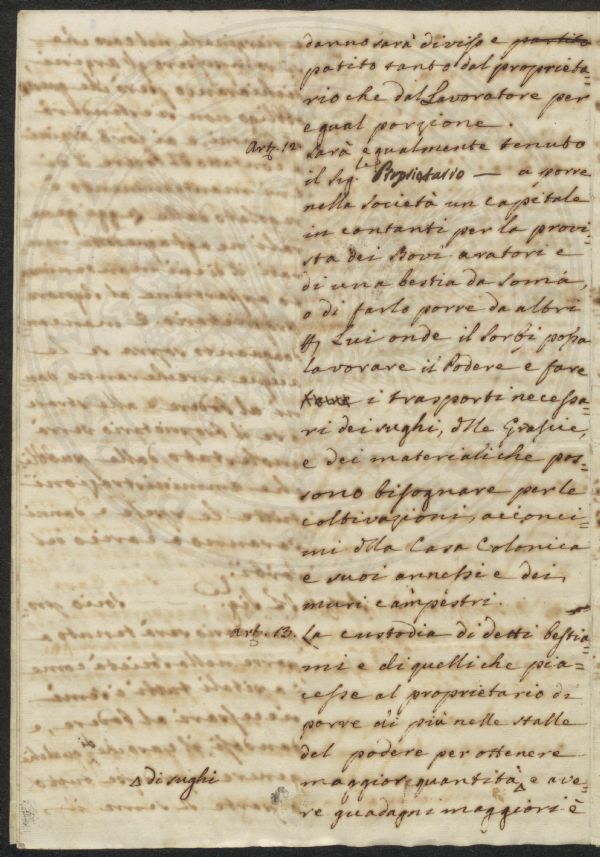 danno sarà diviso e partito
patito tanto dal proprieta=
rio che dal Lavoratore per
egual porzione.
Art. 12. Sarà egualmente tenuto
il Sig. Proprietario — a porre
nella società un capitale
in contanti per la provi=
sta dei Bovi aratori e
di una bestia da soma,
o di farlo porre da altri
Lui onde il Sorbi possa
lavorare il Podere e fare
i trasporti necessa=
ri dei sughi, dlle Grascie,
e dei materiali che pos=
sono bisognare per le
coltivazioni, acconci=
mi dlla Casa Colonica
e suoi annessi e dei
muri campestri.
Art. 13. La custodia di detti bestia=
mi e di quelli che pia=
cesse al proprietario di
porre di più nelle stalle
del podere per ottenere
maggior quantità e ave=
di sughi
re guadagni maggiori è